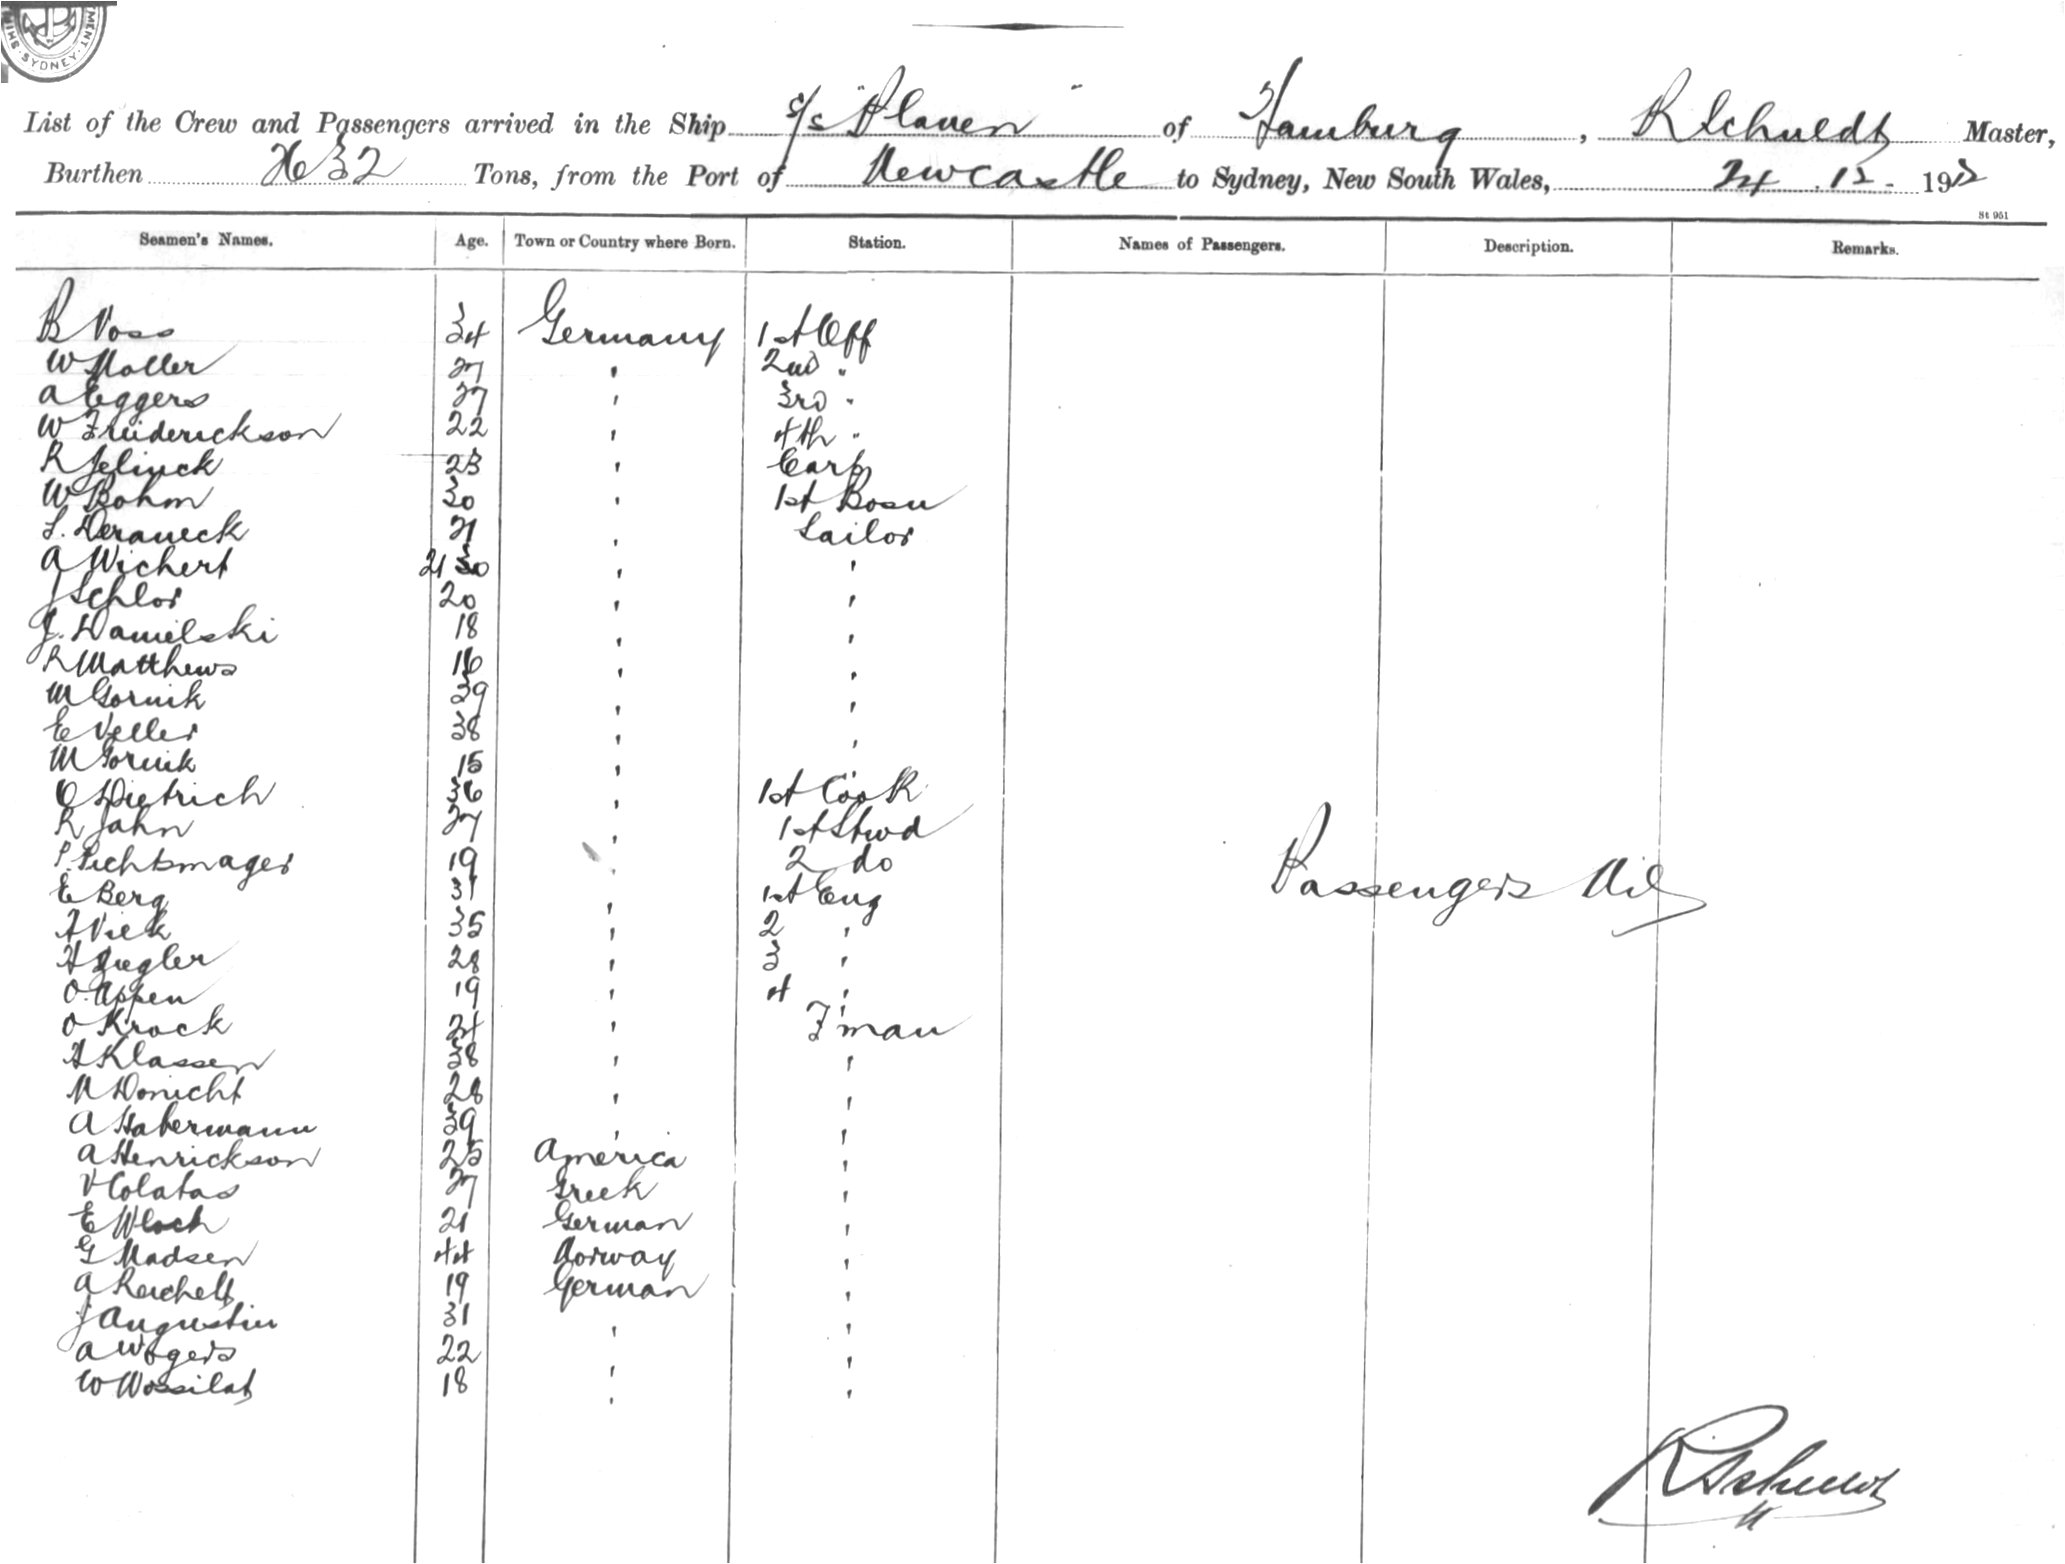 SYDNEY
List of the Crew and Passengers arrived in the Ship s/s "Plauen" of Hamburg, R Schuldt Master,
Burthen 2632 Tons, from the Port of Newcastle to Sydney, New South Wales, 24.12. 1912
St 951
Seamen's Names. Age. Town or Country where Born. Station. Names of Passengers. Description. Remarks.
B Voss 34 Germany 1st Off
W Moller 27 " 2nd "
A Eggers 27 " 3rd "
W Freiderickson 22 " 4th "
R Jelinek 23 " Carp
W Bohm 30 " 1st Bosu
L. Deraneck 21 " Sailor
A Wichert 21 30 " "
J Schlor 20 " "
J. Danielski 18 " "
R Matthews 16 " "
M Gornik 39 " "
E Veller 38 " "
M Gornik 15 " "
O Dietrich 36 " 1st Cook
R Jahn 27 " 1st Stwd
P. 19 " 2 do
E Berg 31 " 1st Eng
A Viek 35 " 2 "
H Ziegler 28 " 3 "
O. Appen 19 " 4 "
O Krock 24 " F'man
H Klassen 38 " "
M Donicht 28 " "
A Habermann 39 " "
A Henrickson 25 America "
V Colatas 27 Greek "
E Wloch 21 German "
G Madsen 44 Norway "
A Reichelt 19 German "
J Augustin 31 " "
A Wogers 22 " "
W Wossilat 18 " "
Passengers Nil
R Schuldt